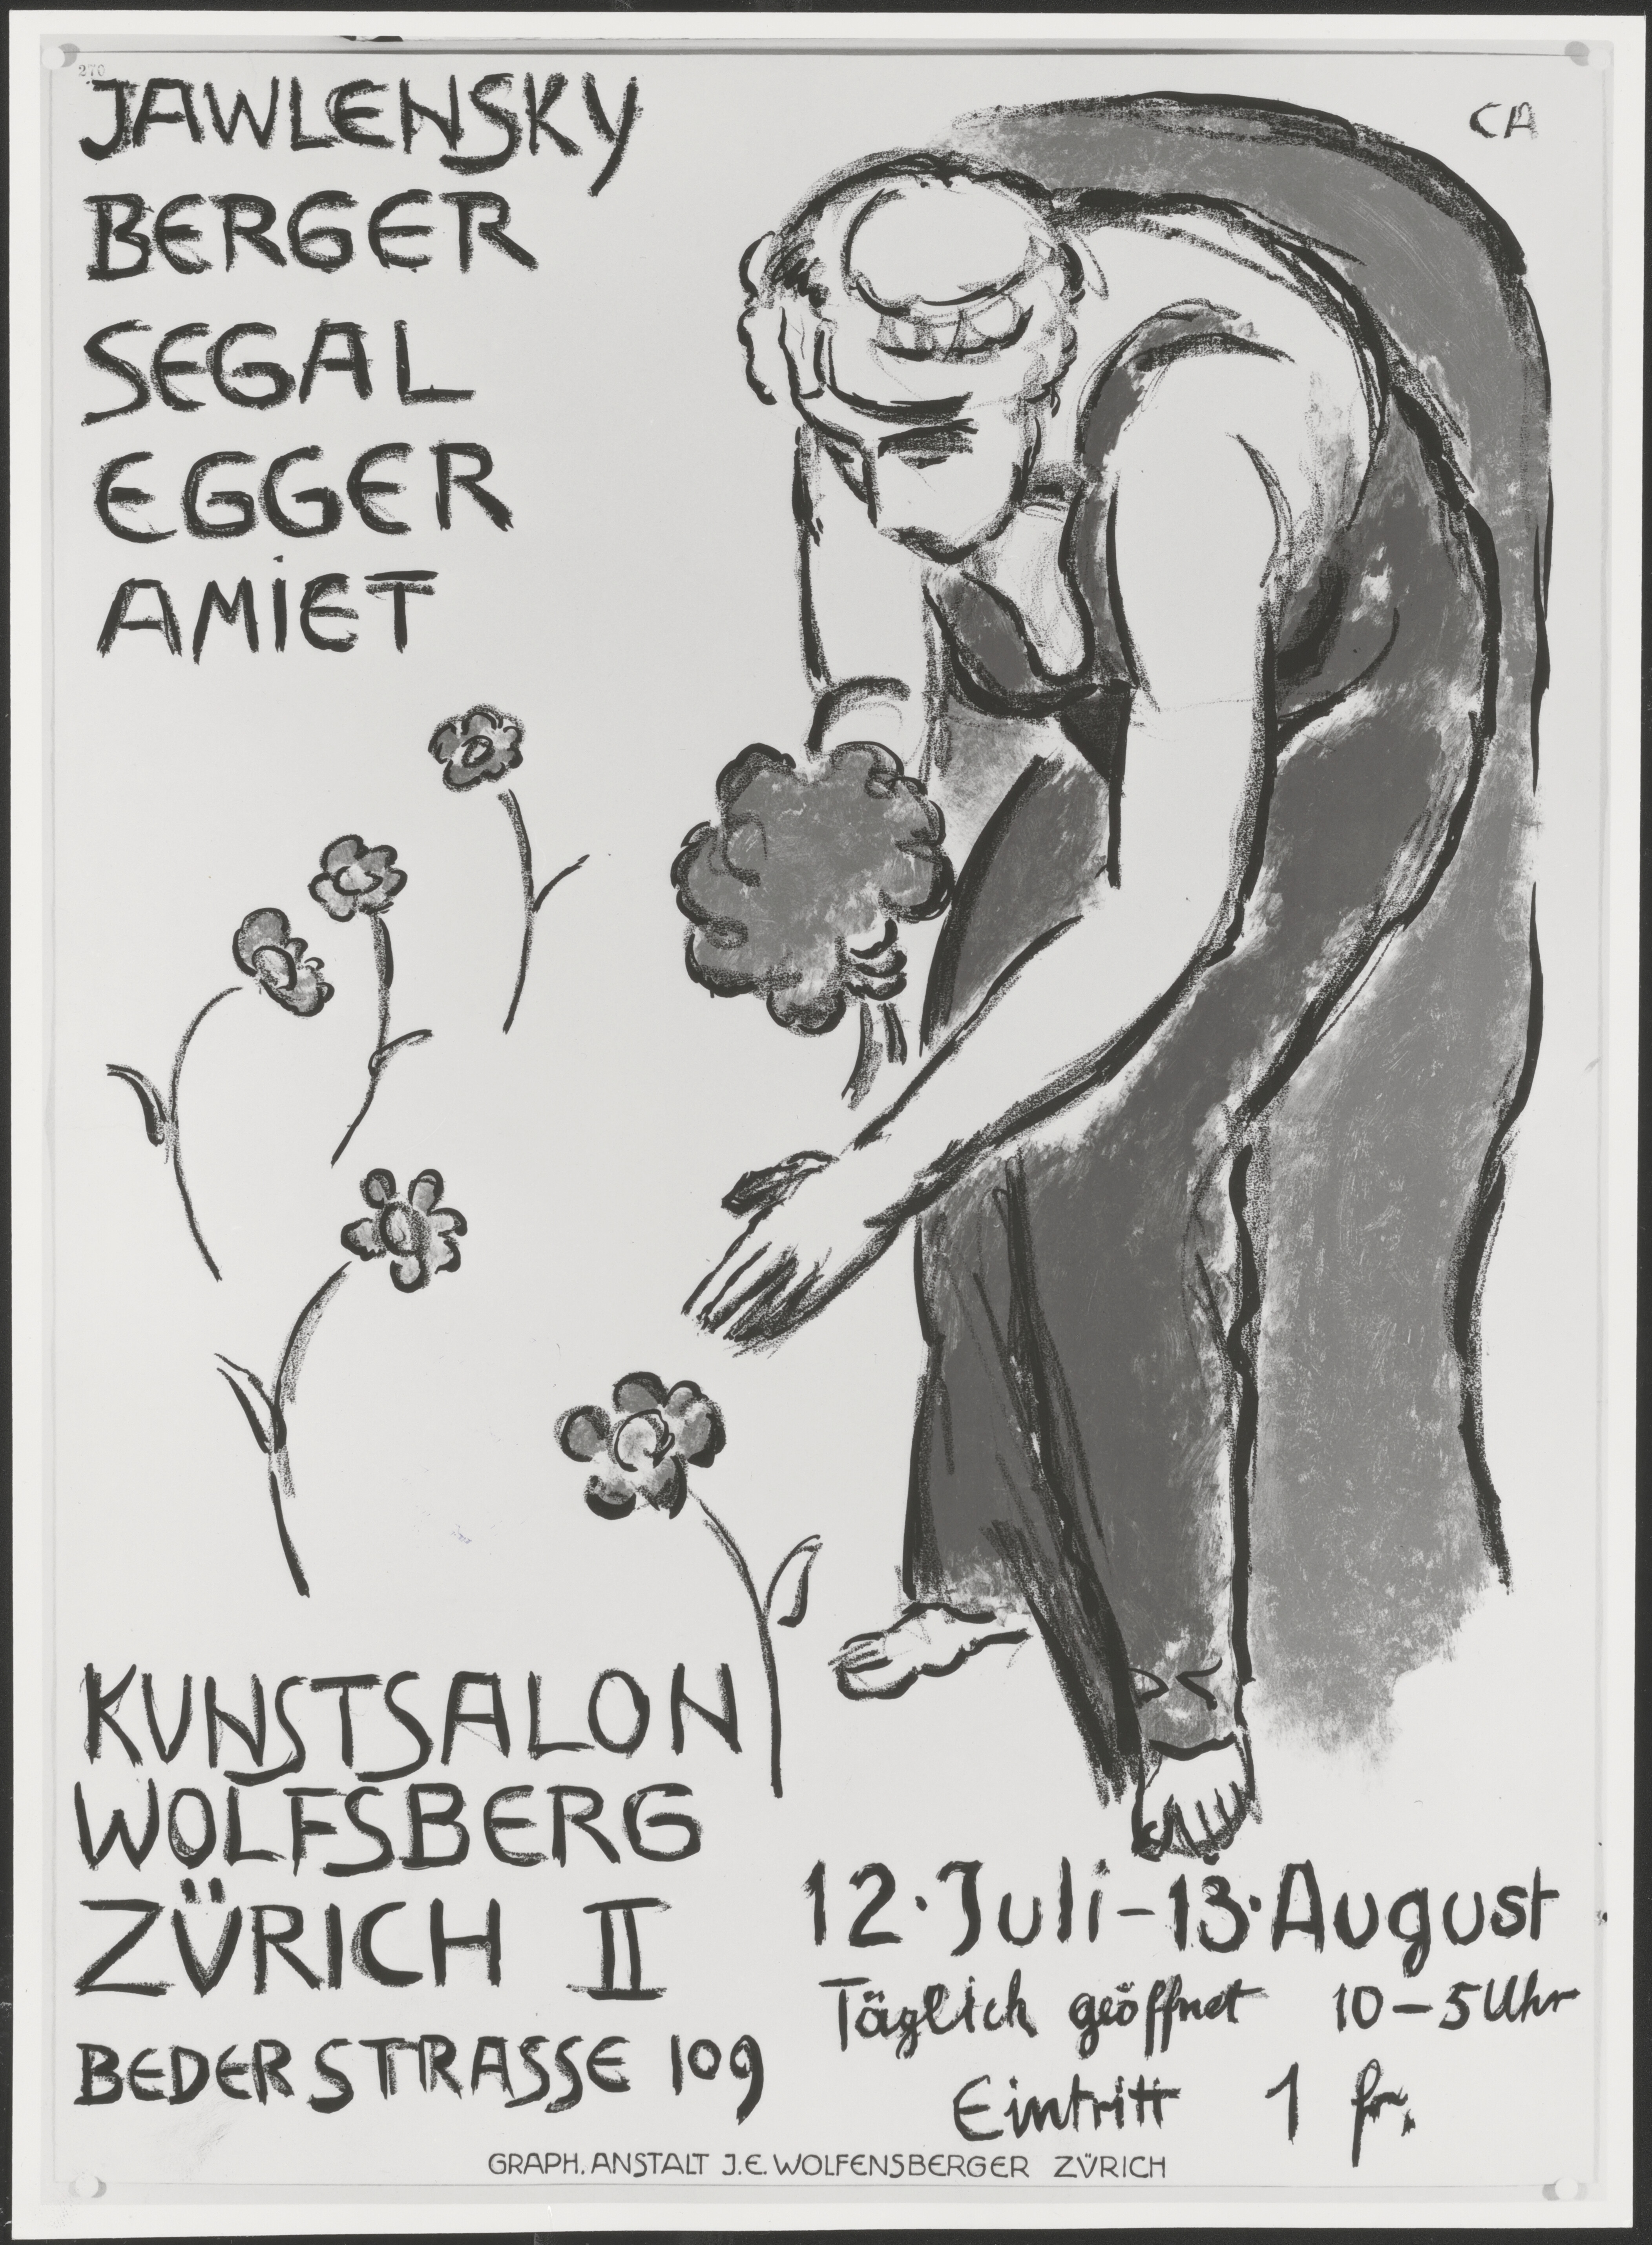 270
JAWLENSKY
BERGER
SEGAL
EGGER
AMIET
CA
KUNSTSALON
WOLFSBERG
ZÜRICH II
BEDERSTRASSE 109
12. Juli - 13. August
Täglich geöffnet 10 - 5 Uhr
Eintritt 1 fr.
GRAPH. ANSTALT J.E. WOLFENSBERGER ZÜRICH